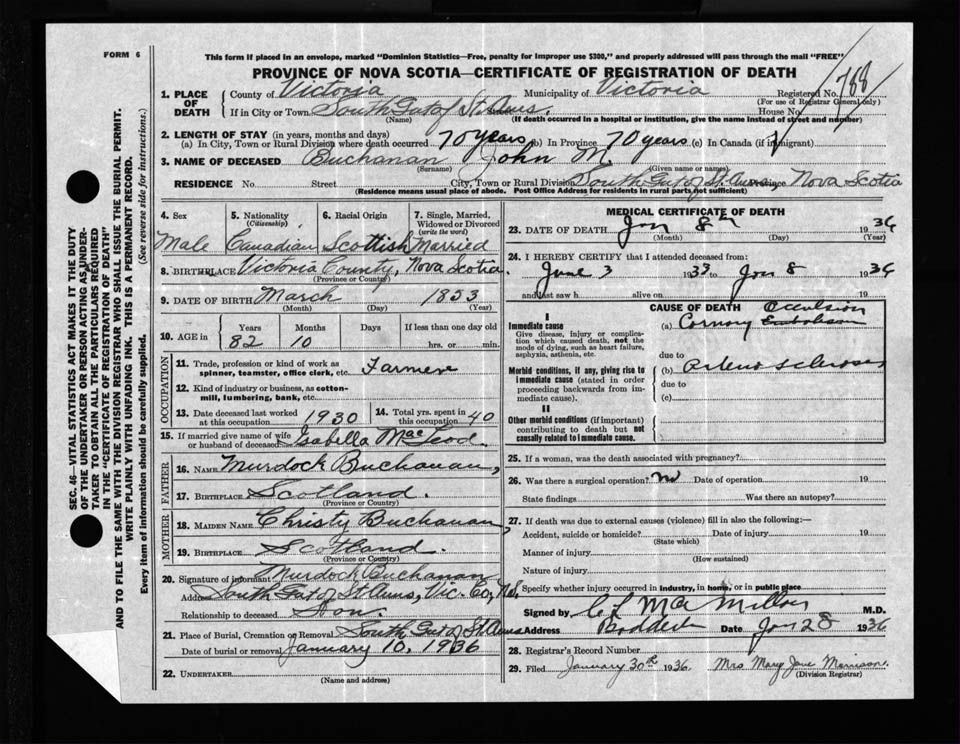 FORM 6
This form if placed in an envelope, marked "Dominion Statistics—Free, penalty for improper use $300," and properly addressed will pass through the mail "FREE"
PROVINCE OF NOVA SCOTIA—CERTIFICATE OF REGISTRATION OF DEATH
768
1. PLACE OF DEATH
County of Victoria Municipality of Victoria Registered No.
(For use of Registrar General only)
If in City or Town South Gut of St. Anns. House No.
(Name) (If death occurred in a hospital or institution, give the name instead of street and number)
2. LENGTH OF STAY (in years, months and days)
(a) In City, Town or Rural Division where death occurred 70 years (b) In Province 70 years (c) In Canada (if immigrant)
3. NAME OF DECEASED Buchanan John M.
(Surname) (Given name or names)
RESIDENCE No. Street City, Town or Rural Division South Gut of St. Anns Province Nova Scotia
(Residence means usual place of abode. Post Office Address for residents in rural parts not sufficient)
4. Sex
Male
5. Nationality
(Citizenship)
Canadian
6. Racial Origin
Scottish
7. Single, Married, Widowed or Divorced
(write the word)
Married
8. BIRTHPLACE Victoria County, Nova Scotia.
(Province or Country)
9. DATE OF BIRTH March 1853
(Month) (Day) (Year)
10. AGE in Years Months Days If less than one day old
82 10 hrs. or min.
OCCUPATION
11. Trade, profession or kind of work as spinner, teamster, office clerk, etc. Farmer
12. Kind of industry or business, as cotton-mill, lumbering, bank, etc.
13. Date deceased last worked at this occupation 1930
14. Total yrs. spent in this occupation 40
15. If married give name of wife or husband of deceased Isabella MacLeod
FATHER
16. NAME Murdock Buchanan,
17. BIRTHPLACE Scotland.
(Province or Country)
MOTHER
18. MAIDEN NAME Christy Buchanan,
19. BIRTHPLACE Scotland.
(Province or Country)
20. Signature of informant Murdock Buchanan
Address South Gut of St Anns, Vic. Co, N.S.
Relationship to deceased Son.
21. Place of Burial, Cremation or Removal South Gut of St Anns
Date of burial or removal January 10, 1936
22. UNDERTAKER
(Name and address)
MEDICAL CERTIFICATE OF DEATH
23. DATE OF DEATH Jan 8th 1936
(Month) (Day) (Year)
24. I HEREBY CERTIFY that I attended deceased from:
June 3 1933 to Jan 8 1936
and last saw h alive on 19
CAUSE OF DEATH
I
Immediate cause
Give disease, injury or complication which caused death, not the mode of dying, such as heart failure, asphyxia, asthenia, etc.
(a) Cornory Occulsion
due to
Morbid conditions, if any, giving rise to immediate cause (stated in order proceeding backwards from immediate cause).
(b) Arterio sclerosis
due to
(c)
II
Other morbid conditions (if important) contributing to death but not causally related to immediate cause.
25. If a woman, was the death associated with pregnancy?
26. Was there a surgical operation? no Date of operation 19
State findings Was there an autopsy?
27. If death was due to external causes (violence) fill in also the following:—
Accident, suicide or homicide? Date of injury 19
(State which)
Manner of injury
(How sustained)
Nature of injury
Specify whether injury occurred in industry, in home, or in public place
Signed by C L MacMillan M.D.
Address Baddeck Date Jan 28 1936
28. Registrar's Record Number
29. Filed January 30th 1936. Mrs Mary Jane Morrison.
(Division Registrar)
SEC. 46—VITAL STATISTICS ACT MAKES IT THE DUTY
OF THE UNDERTAKER OR PERSON ACTING AS UNDER-
TAKER TO OBTAIN ALL THE PARTICULARS REQUIRED
IN THE "CERTIFICATE OF REGISTRATION OF DEATH"
AND TO FILE THE SAME WITH THE DIVISION REGISTRAR WHO SHALL ISSUE THE BURIAL PERMIT.
WRITE PLAINLY WITH UNFADING INK. THIS IS A PERMANENT RECORD.
Every item of information should be carefully supplied. (See reverse side for instructions.)